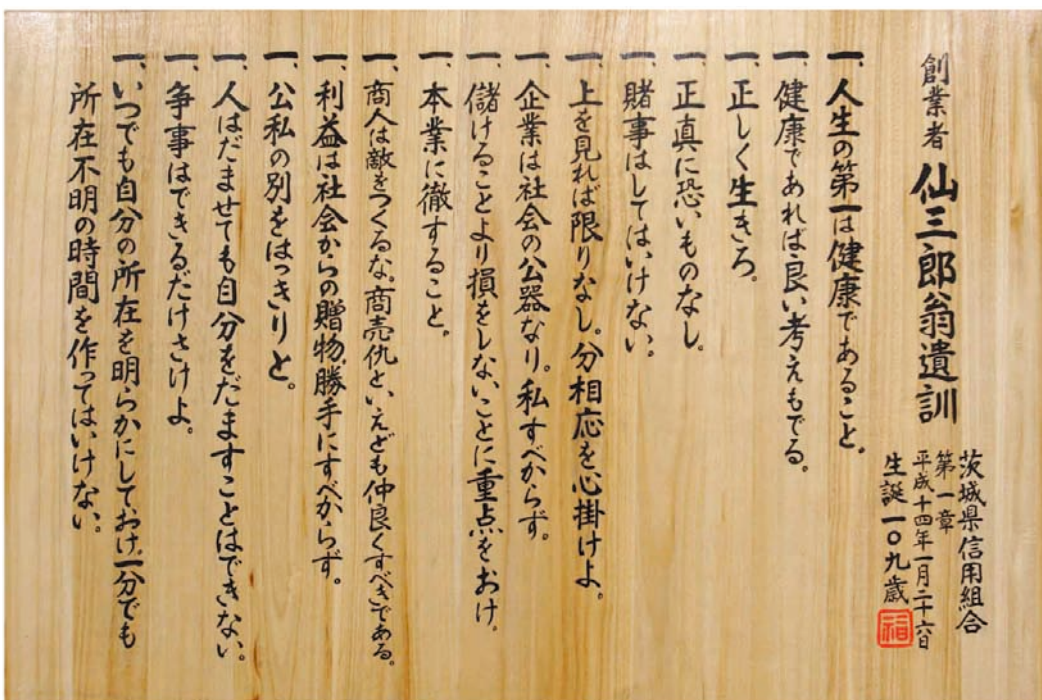 創業者 仙三郎翁遺訓
茨城県信用組合
第一章
平成十四年一月二十六日
生誕一〇九歳
福
一、人生の第一は健康であること。
一、健康であれば良い考えもでる。
一、正しく生きろ。
一、正真に恐いものなし。
一、賭事はしてはいけない。
一、上を見れば限りなし。分相応を心掛けよ。
一、企業は社会の公器なり。私すべからず。
一、儲けることより損をしないことに重点をおけ。
一、本業に徹すること。
一、商人は敵をつくるな。商売仇といえども仲良くすべきである。
一、利益は社会からの贈物、勝手にすべからず。
一、公私の別をはっきりと。
一、人はだませても自分をだますことはできない。
一、争事はできるだけさけよ。
一、いつでも自分の所在を明らかにしておけ。一分でも
所在不明の時間を作ってはいけない。